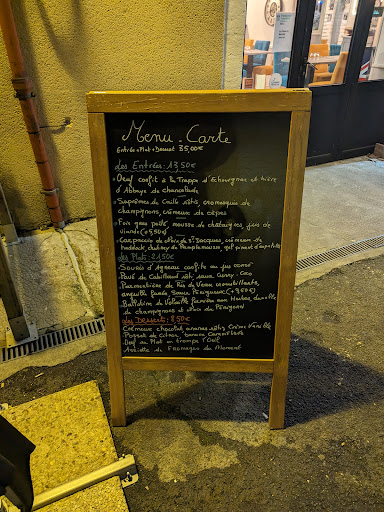 Menu - Carte
Entrée + Plat + Dessert 35,00€
Les Entrées: 13,50€
• Oeuf confit à la Trappe d'Echourgnac et bière
d'Abbaye de Chancelade
• Suprêmes de Caille rôtis, cromesquis de
champignons, crémeux de cèpes
• Foie gras poêlé, mousse de châtaignes, jus de
viande (+5,50€)
• Carpaccio de Noix de St Jacques, crémeux de
haddock, chutney de Pamplemousse,
Les Plats: 21,50€
Souris d'Agneau confite au jus corsé
Pavé de Cabillaud rôti, sauce Curry-Coco
Parmentière de Ris de Veau croustillants,
anguille fumée, Sauce Périgueux
Ballotine de Volaille fermière aux Herbes, duxelle
de champignons et noix du Périgord
Les Desserts: 8,50€
Crémeux chocolat, ananas rôti, Crème Vanille
Posset de Citron,
Oeuf au Plat en trompe l'Oeil
Assiette de Fromages du Moment